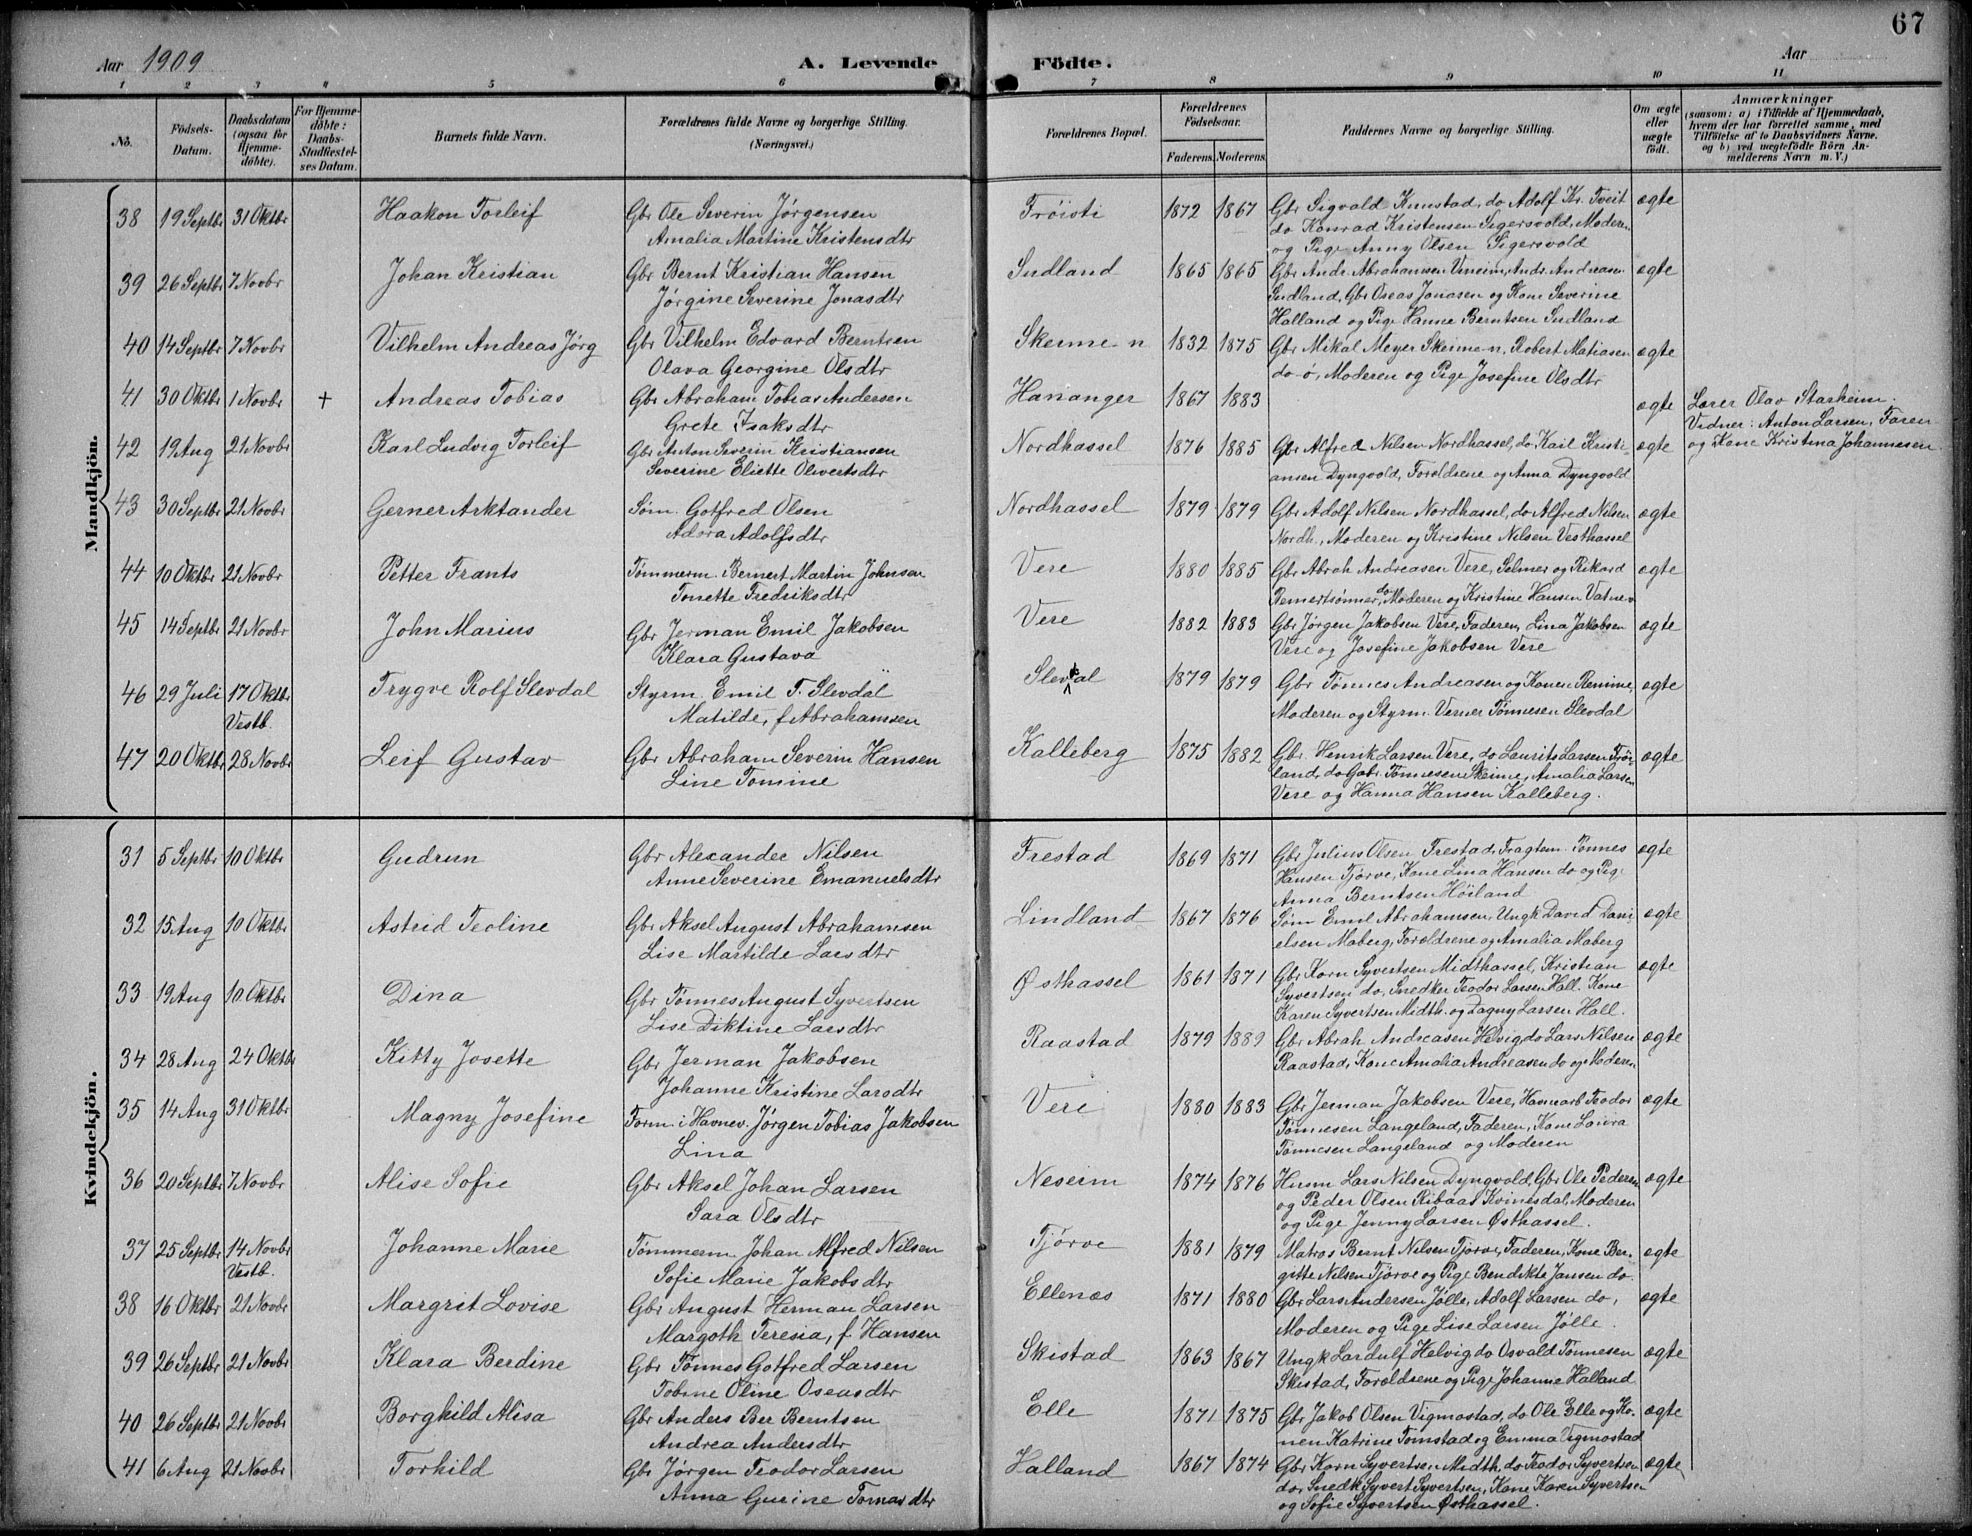 67
Aar 1909
A. Levende
Födte.
Aar
1 2 3 4 5 6 7 8 9 10 11
No.
Födsels-Datum.
Daabsdatum (ogsaa for Hjemme-döbte).
For Hjemme-döbte: Daabs-Stadfæstel-ses Datum.
Barnets fulde Navn.
Forældrenes fulde Navne og borgerlige Stilling. (Næringsvei.)
Forældrenes Bopæl.
Forældrenes Födselsaar.
Faderens. Moderens.
Faddernes Navne og borgerlige Stilling.
Om ægte eller uægte födt.
Anmærkninger
(saasom: a) i Tilfælde af Hjemmedaab, hvem der har forrettet samme, med Tilföielse af to Daabsvidners Navne, og b) ved uægtefödte Börn An-melderens Navn m. V.)
Mandkjön.
38 19 Septbr 31 Oktbr Haakon Torleif Gbr Ole Severin Jørgensen Frøisti 1872 1867 Gbr Sigvald Kumstad, do Adolf Kr. Tveit ægte
Amalia Martine Kristensdtr do Konrad Kristensen Sigersvold, Moderen
og Pige Anny Olsen Sigersvold
39 26 Septbr 7 Novbr Johan Kristian Gbr Bernt Kristian Hansen Sudland 1865 1865 Gbr Andr. Abrahamsen Vineim, Andr. Andreasen ægte
Jørgine Severine Jonasdtr Sudland, Gbr Oseas Jonasen og Kone Severine
Halland og Pige Hanne Berntsen Sudland
40 14 Septbr 7 Novbr Vilhelm Andreas Jørg Gbr Vilhelm Edvard Berntsen Skeime-n 1832 1875 Gbr Mikal Meyer Skeime-n, Robert Matiasen ægte
Olava Georgine Olsdtr do-ø, Moderen og Pige Josefine Olsdtr
41 30 Oktbr 1 Novbr + Andreas Tobias Gbr Abraham Tobias Andersen Hananger 1867 1883 ægte Lærer Olav Starheim.
Grete Isaksdtr Vidner: Anton Larsen, Faren
og Kone Kristina Johannesen
42 19 Aug 21 Novbr Karl Ludvig Torleif Gbr Anton Severin Kristiansen Nordhassel 1876 1885 Gbr Alfred Nilsen Nordhassel, do Karl Kristi- ægte
Severine Eliette Olivertsdtr ansen Dyngvold, Forældrene og Anna Dyngvold
43 30 Septbr 21 Novbr Gerner Arktander Søm. Gotfred Olsen Nordhassel 1879 1879 Gbr Adolf Nilsen Nordhassel, do Alfred Nilsen ægte
Adora Adolfsdtr Nordh., Moderen og Kristine Nilsen Vesthassel
44 10 Oktbr 21 Novbr Petter Frants Tømmerm. Bernert Martin Johnsen Vere 1880 1885 Gbr Abrah Andreasen Vere, Selmer og Rikard ægte
Tonette Fredriksdtr Bernertsønner do, Moderen og Kristine Hansen Vatne
45 14 Septbr 21 Novbr John Marius Gbr Jerman Emil Jakobsen Vere 1882 1883 Gbr Jørgen Jakobsen Vere, Faderen, Lina Jakobsen ægte
Klara Gustava Vere og Josefine Jakobsen Vere
46 29 Juli 17 Oktbr Trygve Rolf Slevdal Styrm. Emil T. Slevdal Slevdal 1879 1879 Gbr Tønnes Andreasen og Kone Remime, ægte
Vestb. Matilde, f Abrahamsen Moderen og Styrm. Verner Tønnesen Slevdal
47 20 Oktbr 28 Novbr Leif Gustav Gbr Abraham Severin Hansen Kalleberg 1875 1882 Gbr. Henrik Larsen Vere, do Laurits Larsen Frøi- ægte
Line Tomine land, do Gabr. Tønnesen Skeime, Amalia Larsen
Vere og Hanna Hansen Kalleberg.
Kvindekjön.
31 5 Septbr 10 Oktbr Gudrun Gbr Alexander Nilsen Frestad 1869 1871 Gbr Julius Olsen Frestad, Fragtem. Tønnes ægte
Anne Severine Emanuelsdtr Hansen Tjørve, Kone Lina Hansen do og Pig
Anna Berntsen Høiland
32 15 Aug 10 Oktbr Astrid Teoline Gbr Aksel August Abrahamsen Lindland 1867 1876 Søm Emil Abrahamsen, Ungk David Dani ægte
Lise Martilde Larsdtr elsen Maberg, Forældrene og Amalia Maberg
33 19 Aug 10 Oktbr Dina Gbr Tønnes August Syvertsen Østhassel 1861 1871 Gbr Korn Syvertsen Midthassel, Kristian ægte
Lise Diktine Larsdtr Syvertsen do, Snedker Teodor Larsen Hall. Kone
Karen Syvertsen Midth. og Dagny Larsen Hall.
34 28 Aug 24 Oktbr Kitty Josette Gbr Jerman Jakobsen Raastad 1879 1889 Gbr Abrah Andreasen Helvig, do Lars Nilsen ægte
Johanne Kristine Larsdtr Raastad, Kone Amalia Andreasen do og Moderen
35 14 Aug 31 Oktbr Magny Josefine Form. i Havnev. Jørgen Tobias Jakobsen Vere 1880 1883 Gbr Jerman Jakobsen Vere, Havnearb Teodor ægte
Lina Tønnesen Langeland, Faderen, Kone Laura
Tønnesen Langeland og Moderen
36 20 Septbr 7 Novbr Alise Sofie Gbr Aksel Johan Larsen Neseim 1874 1876 Husm Lars Nilsen Dyngvold, Gbr Ole Pedersen ægte
Sara Olsdtr og Peder Olsen Ribaas Kvinesdal, Moderen
og Pige Jenny Larsen Østhassel.
37 25 Septbr 14 Novbr Johanne Marie Tømmerm. Johan Alfred Nilsen Tjørve 1881 1879 Matros Bernt Nilsen Tjørve, Faderen, Kone Ber- ægte
Vestb. Sofie Marie Jakobsdtr gitte Nilsen Tjørve og Pige Bendikte Jansen do.
38 16 Oktbr 21 Novbr Margrit Lovise Gbr August Herman Larsen Ellenæs 1871 1880 Gbr Lars Andersen Jølle, Adolf Larsen do, ægte
Margoth Teresia, f. Hansen Moderen og Pige Lise Larsen Jølle.
39 26 Septbr 21 Novbr Klara Berdine Gbr Tønnes Gotfred Larsen Skistad 1863 1867 Ungk Lardulf Helvig do Osvald Tønnesen ægte
Tobine Oline Oseasdtr Skistad, Forældrene og Pige Johanne Halland
40 26 Septbr 21 Novbr Borghild Alisa Gbr Anders Ber Berntsen Elle 1871 1875 Gbr Jakob Olsen Vigmostad, do Ole Elle og Ko- ægte
Andrea Andersdtr nen Katrine Tomstad og Emma Vigmostad
41 6 Aug 21 Novbr Torhild Gbr Jørgen Teodor Larsen Halland 1867 1874 Gbr Korn Syvertsen Midth, do Teodor Syvertsen ægte
Anna Gurine Tomasdtr do, Snedk Syvert Syvertsen, Kone Karen Syvertsen
og Sofie Syvertsen Østhassel.